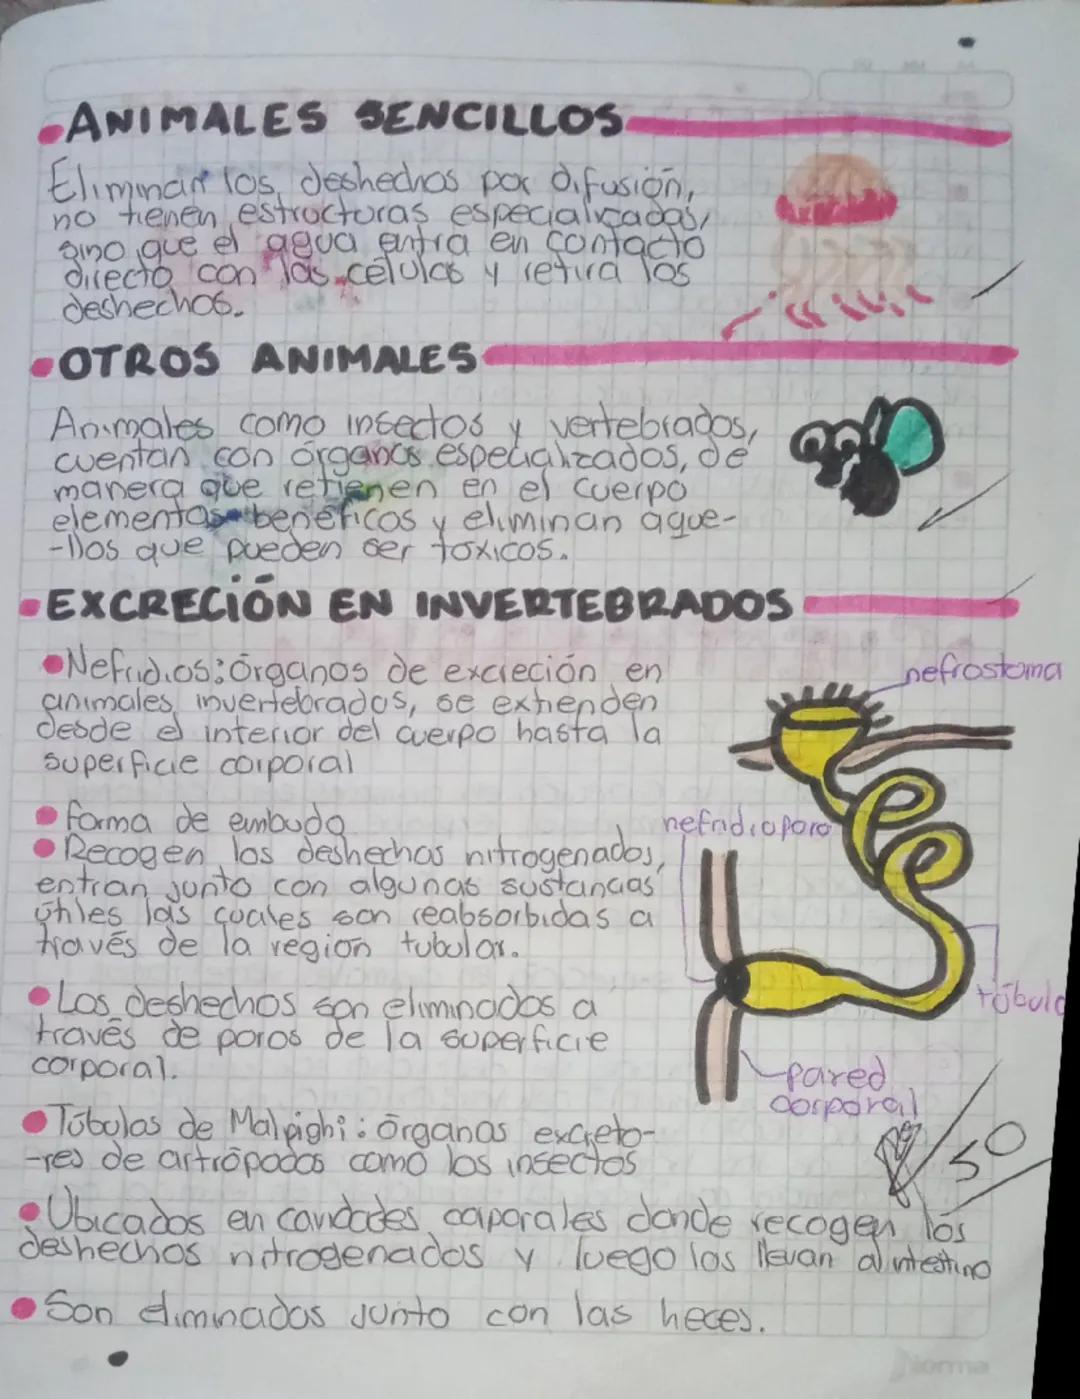 ANIMALES SENCILLOS
Eliminan los deshechos por difusión,
no tienen estructuras especializadas,
sino que el agua entra en contacto
directo con las células y retira los
deshechos.
OTROS ANIMALES
Animales como insectos y vertebrados,
cuentan con órganos especializados, de
manera que retienen en el cuerpo
elementos benéficos y eliminan aque-
-llos que pueden ser tóxicos.
EXCRECIÓN EN INVERTEBRADOS
Nefridios: órganos de excreción en
animales invertebrados, se extienden
desde el interior del cuerpo hasta la
superficie corporal
nefrostoma
Forma de embudo
nefridioporo
Recogen los deshechos nitrogenados,
entran junto con algunas sustancias
útiles las cuales son reabsorbidas a
través de la región tubular.
Los deshechos son eliminados a
través de poros de la superficie
corporal.
túbulo
pared
corporal
Túbulos de Malpighi: órganos excreto-
-res de artrópodos como los insectos
50
Ubicados en cavidades corporales donde recogen los
deshechos nitrogenados y luego los llevan al intestino
Son eliminados junto con las heces.
Norma